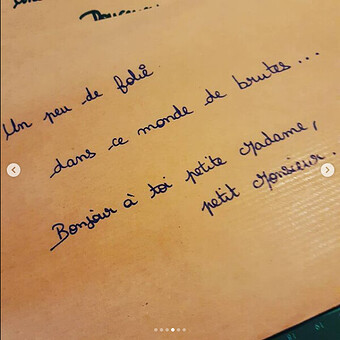 Un peu de folie
dans ce monde de brutes...
Bonjour à toi petite Madame,
petit Monsieur.